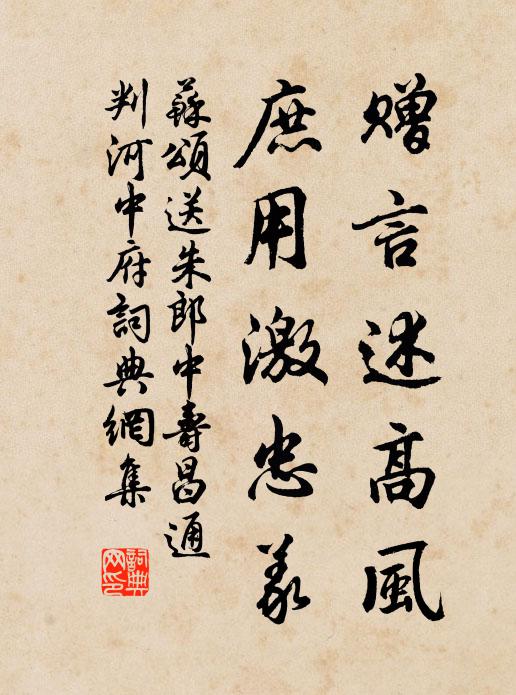 赠言述高風
庶用激忠義
蘇頌送朱郎中壽昌通
判河中府詞典網集
詞典
网印